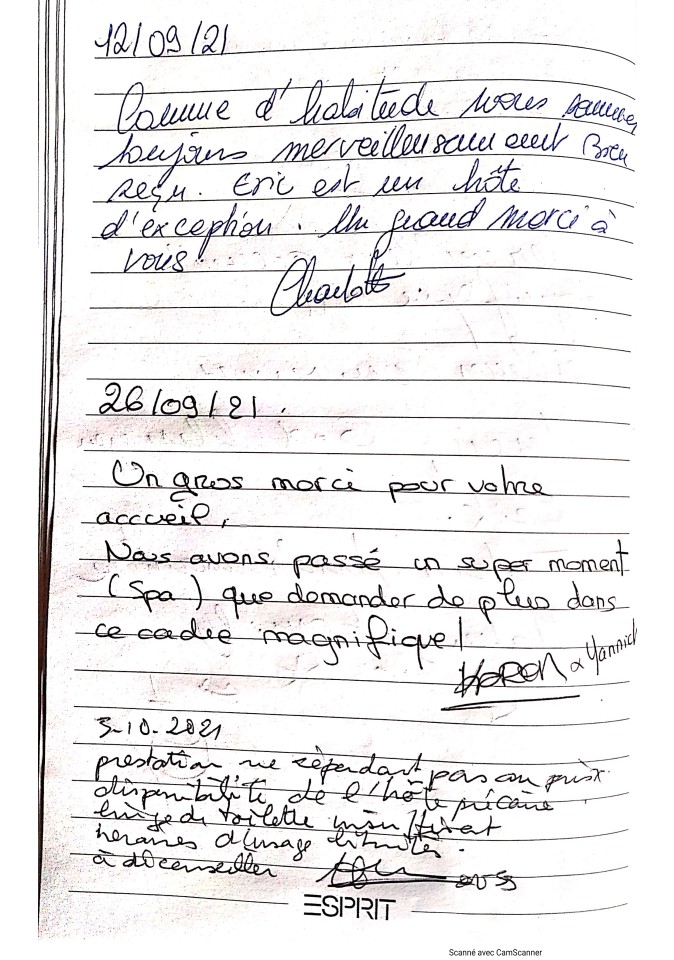 12/09/21
Comme d'habitude nous sommes
toujours merveilleusement Bien
reçu. Eric est un hôte
d'exception. Un grand merci à
vous.
Charlotte.
26/09/21.
Un gros merci pour votre
accueil,
Nous avons passé un super moment
(Spa) que demander de plus dans
ce cadre magnifique!
KAREN & Yannick
3-10-2021
prestation ne répondant pas au prix.
disponibilité de l'hôte précaire
linge de toilette insuffisant
horaires d'usage limités.
à déconseiller
ESPRIT
Scanné avec CamScanner